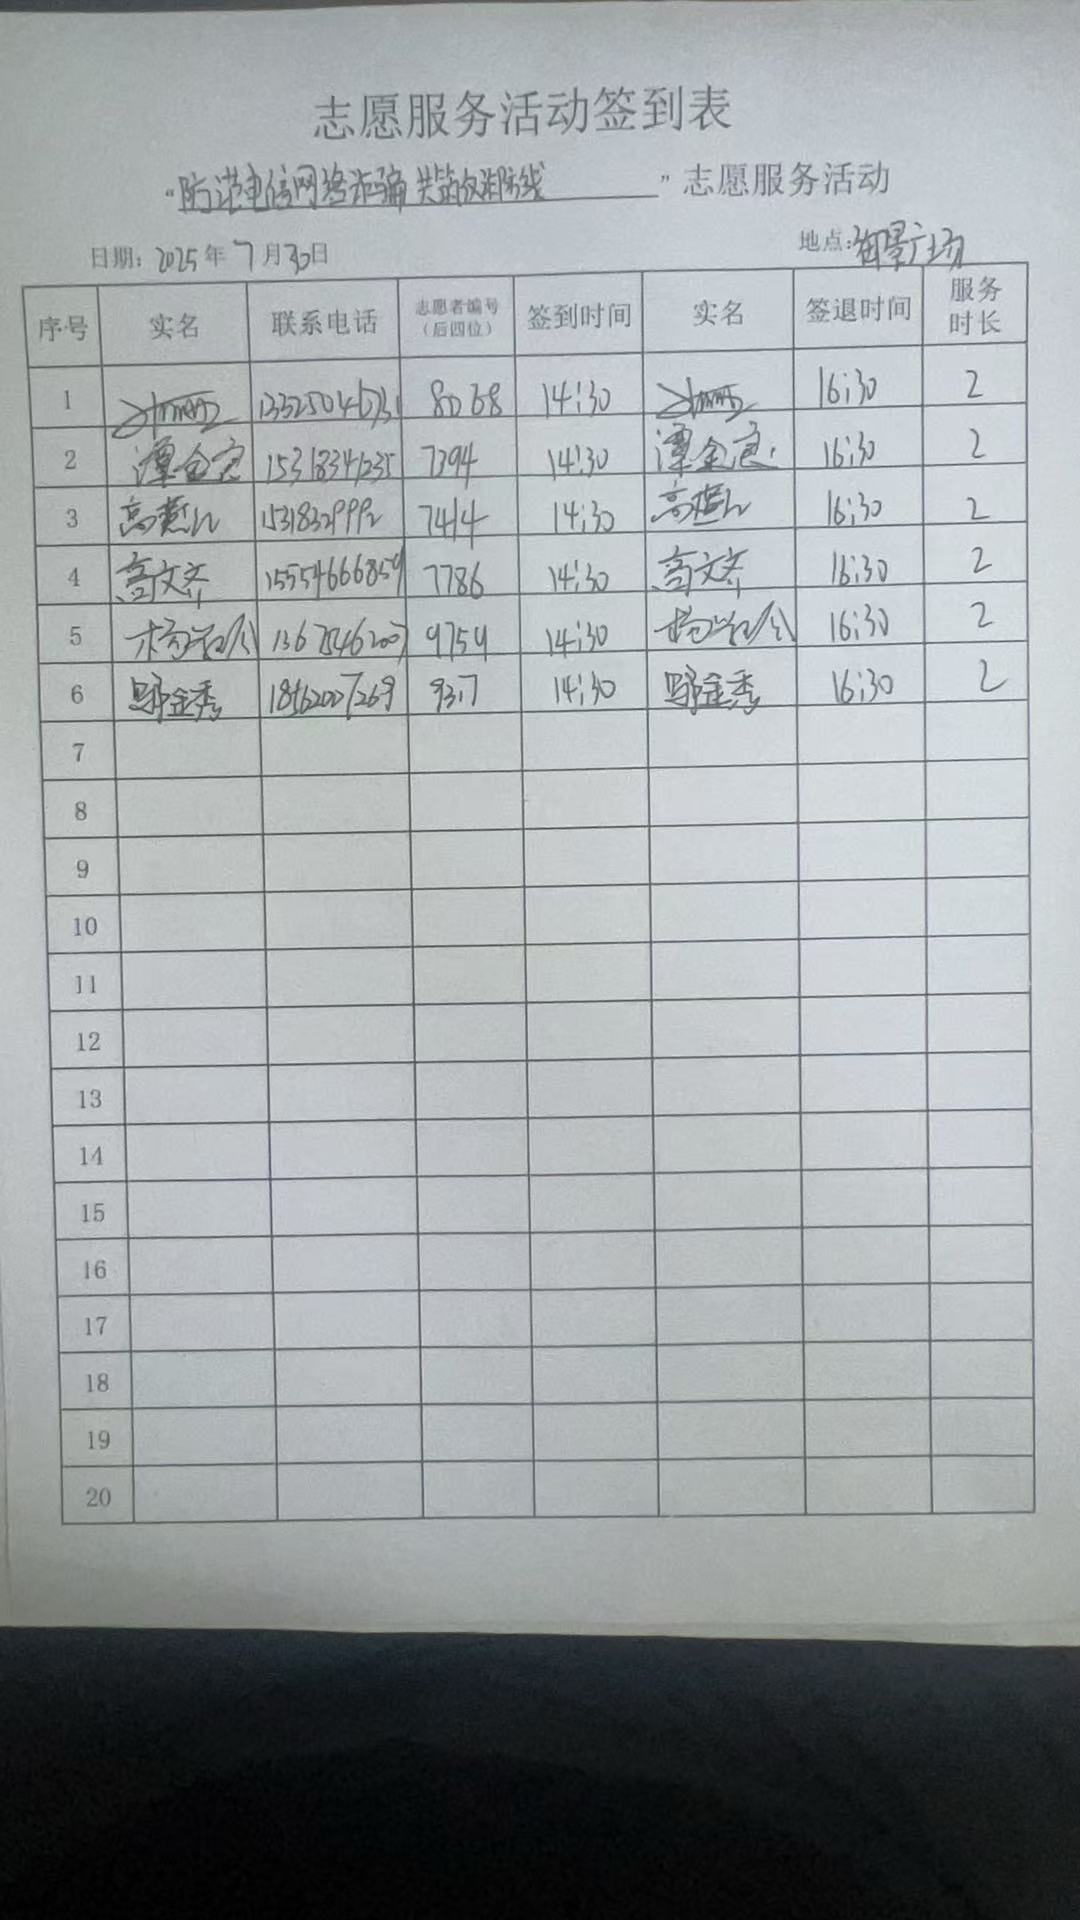 志愿服务活动签到表
“防范电信网络诈骗 共筑反诈防线”志愿服务活动
日期: 2025年7月30日 地点: 御景广场
序号 实名 联系电话 志愿者编号（后四位） 签到时间 实名 签退时间 服务时长
1 8068 14:30 16:30 2
2 谭金良 15318341235 7394 14:30 谭金良 16:30 2
3 15318329992 7414 14:30 16:30 2
4 高文齐 15554666859 7786 14:30 高文齐 16:30 2
5 9759 14:30 16:30 2
6 金秀 18562007269 14:30 金秀 16:30 2
7
8
9
10
11
12
13
14
15
16
17
18
19
20